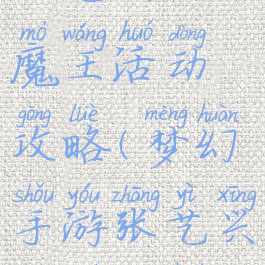 mó wáng huó dòng
魔王活动
gōng lüè mèng huàn
攻略(梦幻
shǒu yóu zhāng yì xīng
手游张艺兴